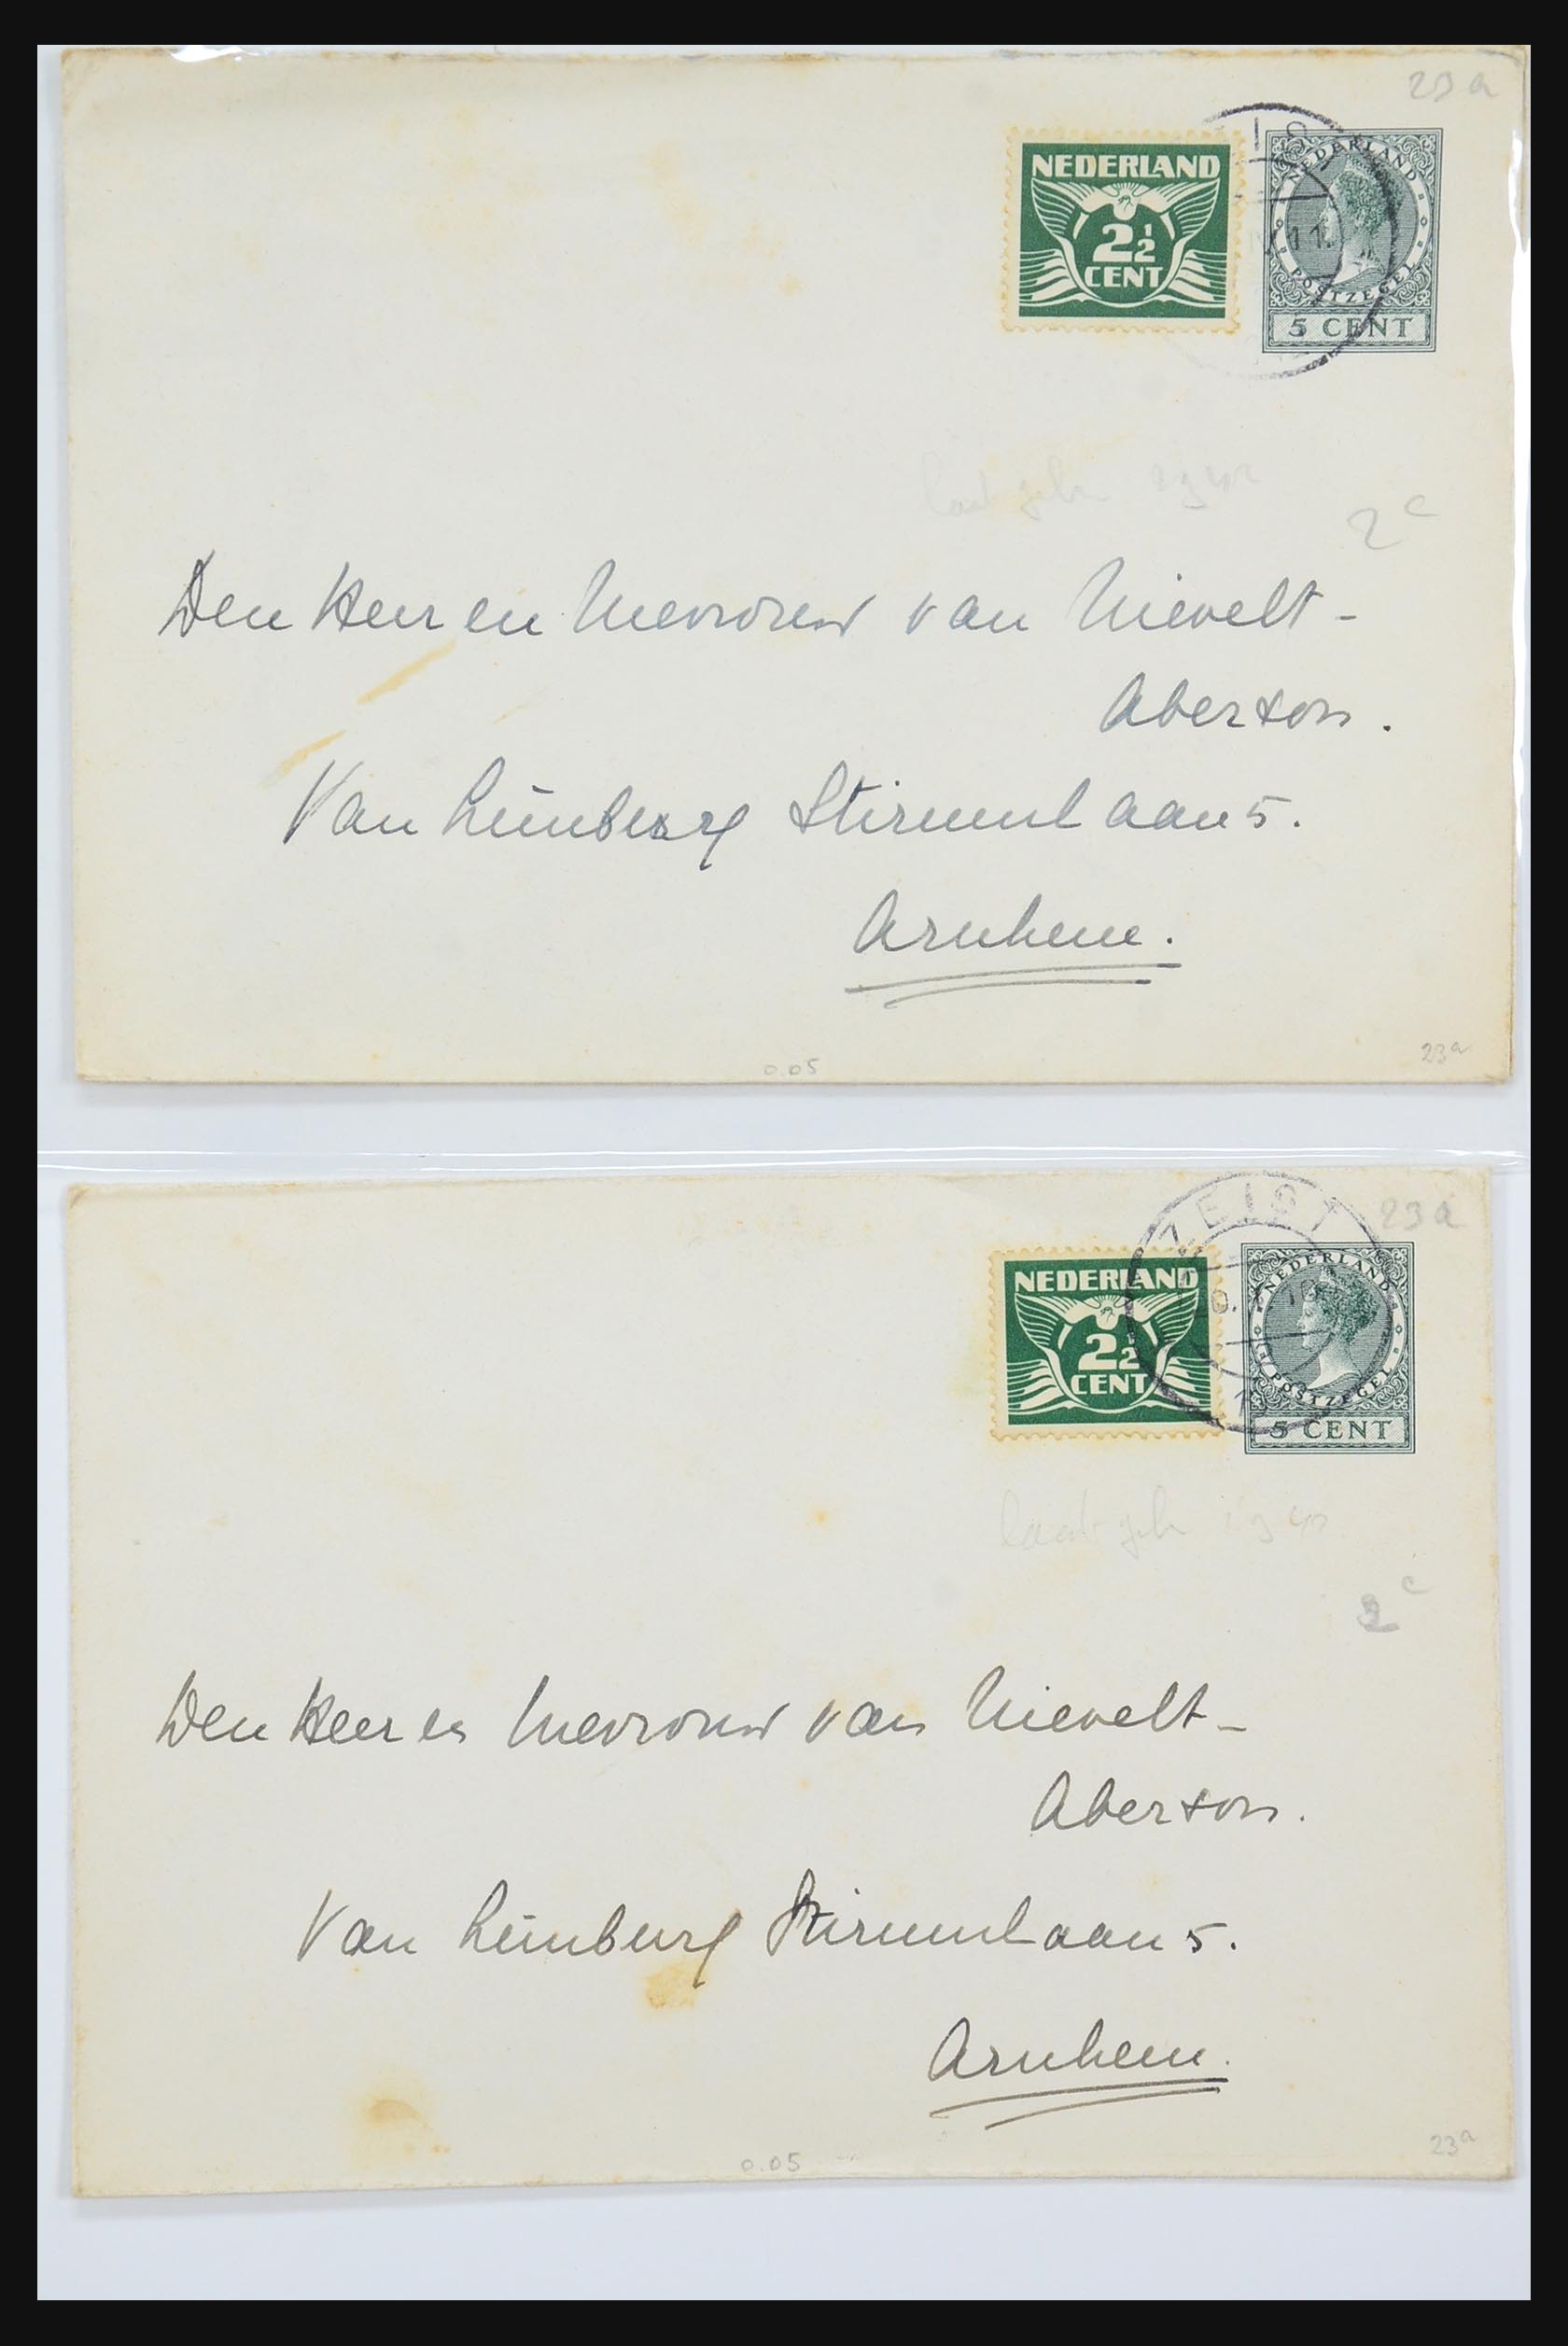 23a
NEDERLAND
2½
CENT
NEDERLAND
POSTZEGEL
5 CENT
2c
Den Heer en Mevrouw van Nievelt-
Aberson.
Van Limburg Stirumlaan 5.
Arnhem.
0.05
23a
ZEIST
23a
NEDERLAND
2½
CENT
NEDERLAND
POSTZEGEL
5 CENT
laat gebr.
c
Den Heer en Mevrouw van Nievelt-
Aberson.
Van Limburg Stirumlaan 5.
Arnhem.
0.05
23a